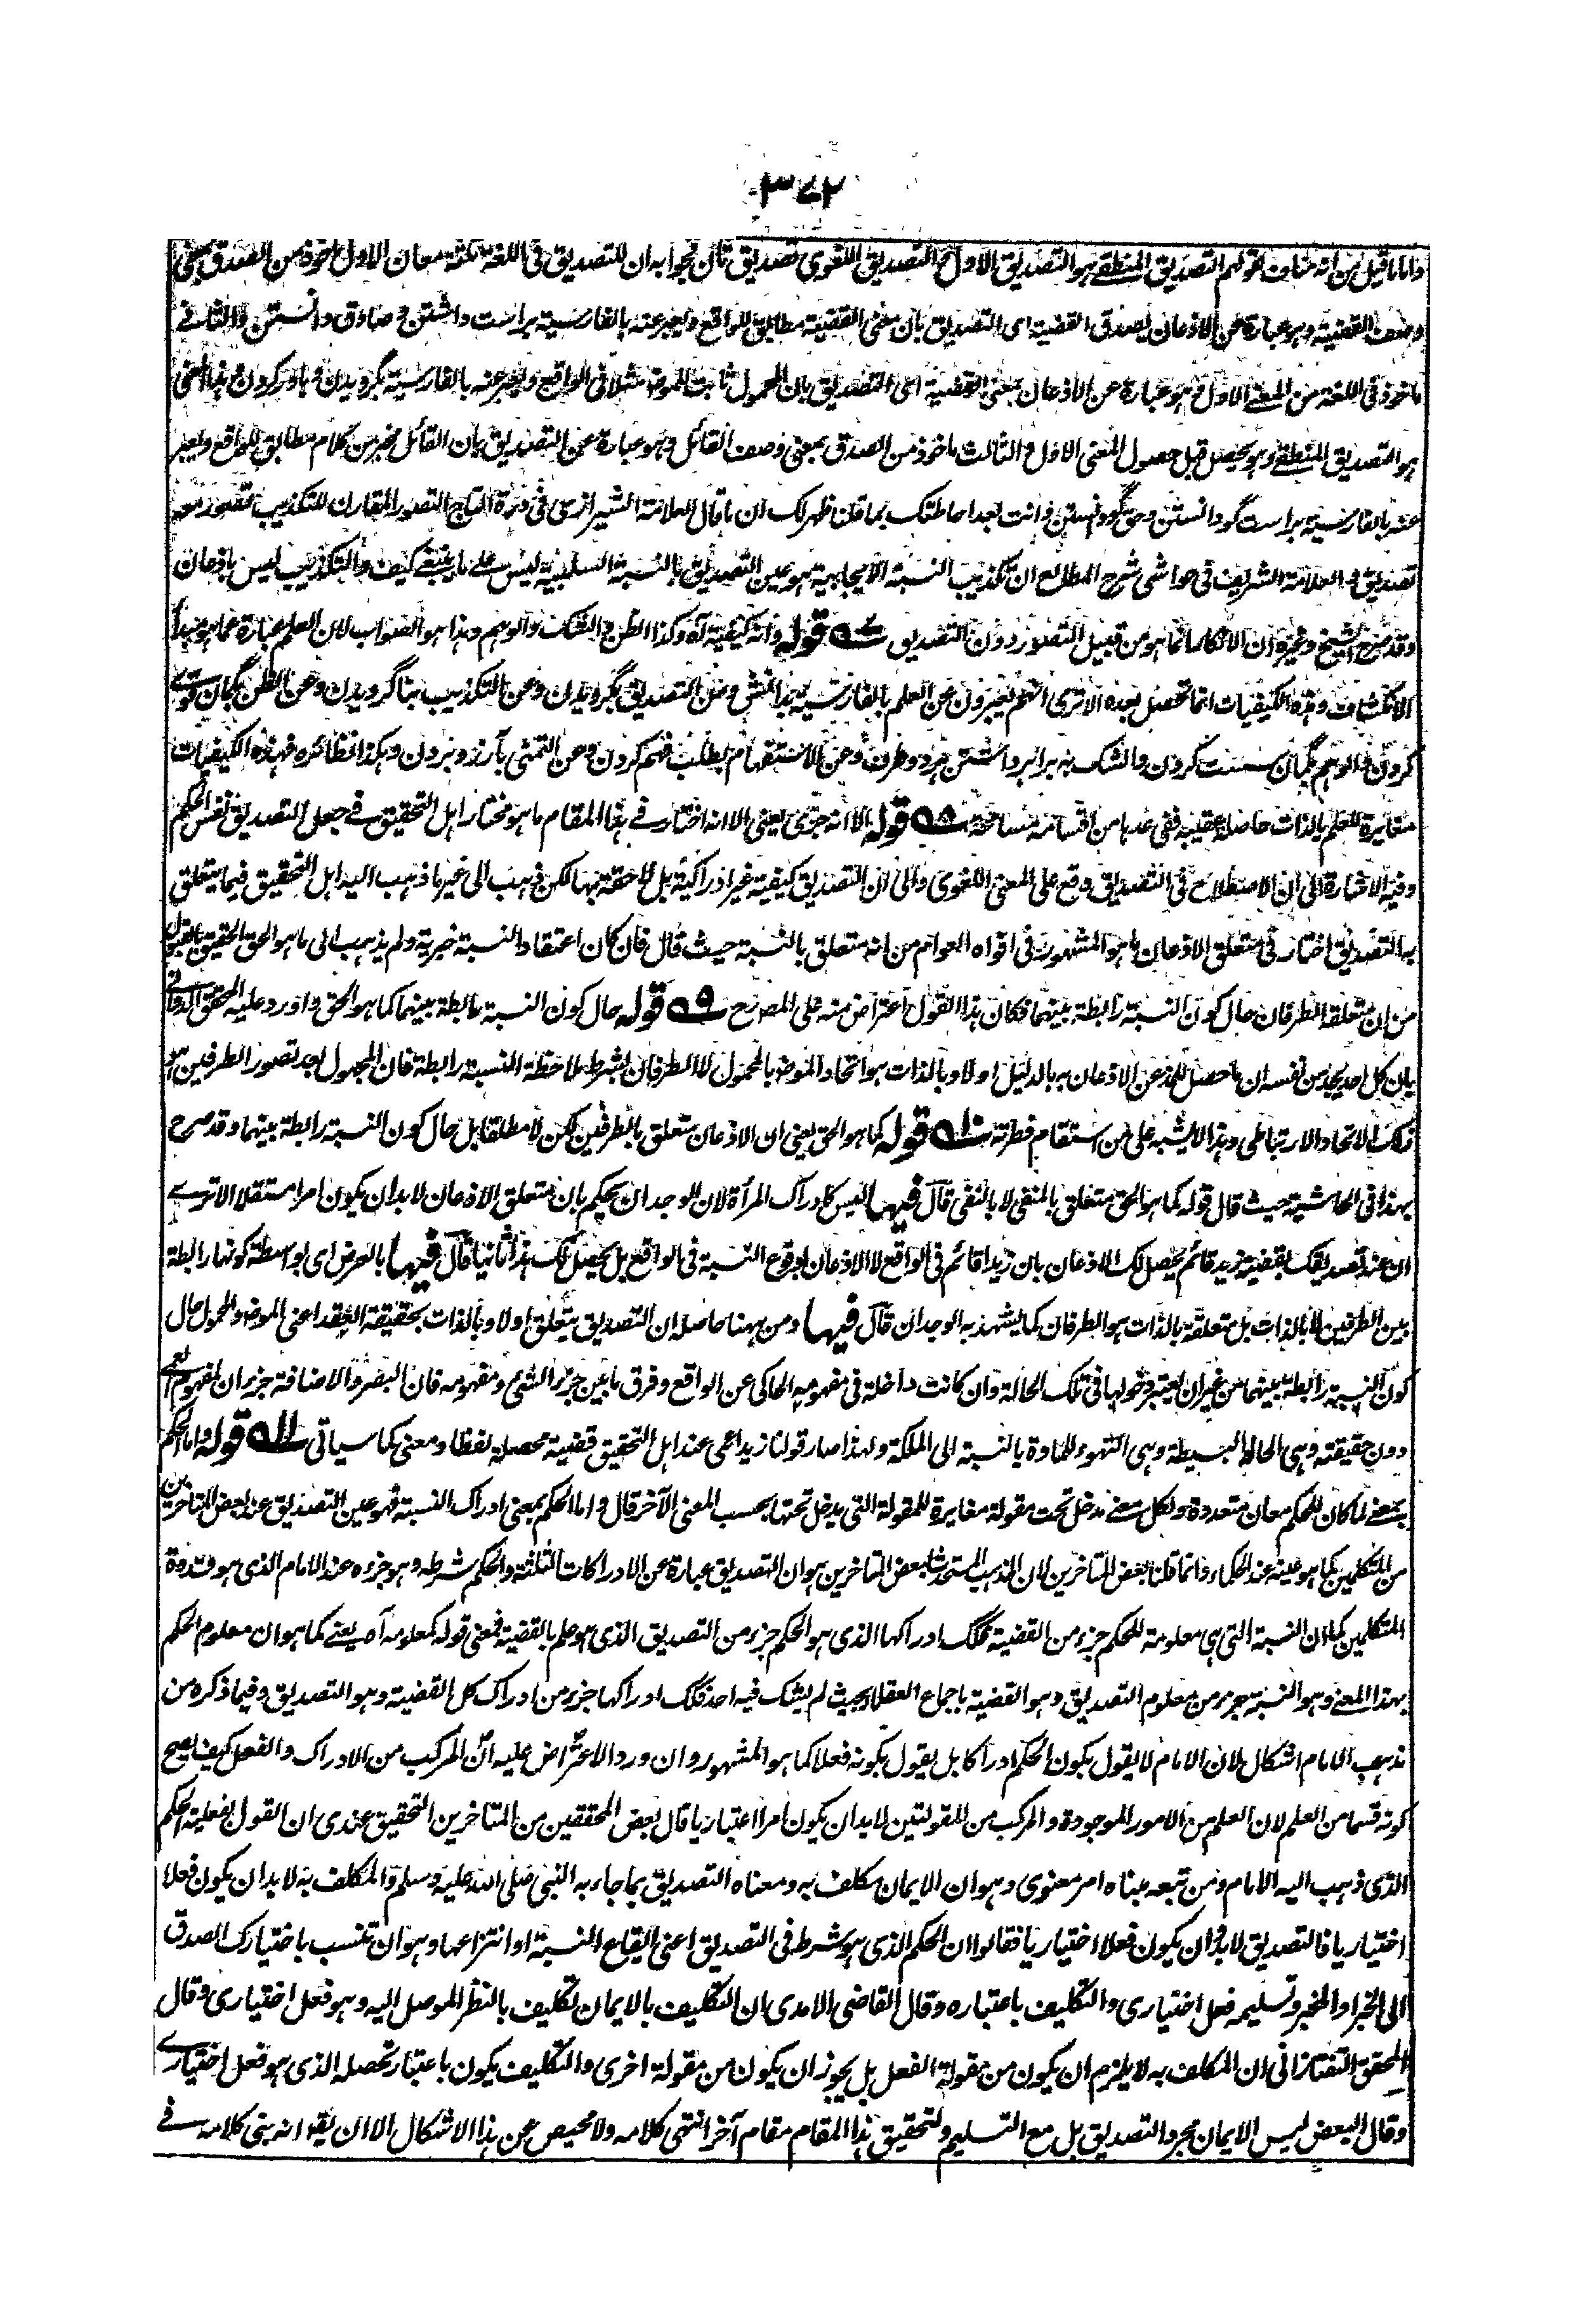 ٣٧٢
واما ما قيل من انه مناف لقولهم التصديق المنطقى هو التصديق الاول والتصديق اللغوى تصديق ثان فجوابه ان للتصديق فى اللغة ثلثة معان الاول ماخوذ من الصدق بمعنى
وصف القضية وهو عبارة عن الاذعان بصدق القضية اى التصديق بان معنى القضية مطابق للواقع ويعبر عنه بالفارسية براست داشتن وصادق دانستن والثانى
ماخوذ فى اللغة من المعنى الاول وهو عبارة عن الاذعان بمعنى القضية اى التصديق بان المحمول ثابت للموضوع مثلا فى الواقع ويعبر عنه بالفارسية بگرويدن وباور كردن وهذا المعنى
هو التصديق المنطقى وهو يحصل قبل حصول المعنى الاول والثالث ماخوذ من الصدق بمعنى وصف القائل وهو عبارة عن التصديق بان القائل مخبر عن كلام مطابق للواقع ويعبر
عنه بالفارسية براست گو دانستن وحق گو دانستن وانت بعد احاطتك بما قلنا ظهر لك ان ما قال العلامة الشيرازى فى درة التاج التصور المقارن للتكذيب تصور معه
تصديق والعلامة الشريف فى حواشى شرح المطالع ان تكذيب النسبة الايجابية هو عين التصديق بالنسبة السلبية ليس على ما ينبغى كيف والتكذيب ليس باذعان
وقد صرح الشيخ وغيره ان الانكار انما هو من قبيل التصور دون التصديق قوله وانه كيفية آه وكذا الظن والشك والوهم وهذا هو الصواب لان العلم عبارة عما هو مبدأ
الانكشاف وهذه الكيفيات انما تحصل بعده الا ترى انهم يعبرون عن العلم بالفارسية بدانش وعن التصديق بگرويدن وعن التكذيب بناگرويدن وعن الظن بگمان قوى
كردن والوهم بگمان سست كردن والشك به برابر داشتن هر دو طرف وعن الاستفهام بطلب فهم كردن وعن التمنى بآرزو بردن وهكذا نظائره فهذه الكيفيات
مغايرة للعلم بالذات حاصلة عقيبه ففى عدها من اقسامه مسامحة قوله الا انه جرى يعنى الا انه اختار فى هذا المقام ما هو مختار اهل التحقيق فى جعل التصديق نفس الحكم
وفيه الاشارة الى ان الاصطلاح فى التصديق وقع على المعنى اللغوى والى ان التصديق كيفية غير ادراكية بل لاحقة بها لكن ذهب الى غير ما ذهب اليه اهل التحقيق فيما يتعلق
به التصديق اختار فى متعلق الاذعان ما هو المشهور فى افواه العوام من انه متعلق بالنسبة حيث قال فان كان اعتقادا لنسبة خبرية ولم يذهب الى ما هو الحق الحقيق بالقبول
من ان متعلقه الطرفان حال كون النسبة رابطة بينهما فكان هذا القول اعتراض منه على المصرح قوله حال كون النسبة رابطة بينهما كما هو الحق واورد عليه المحقق الدوانى
بان كل احد يجد من نفسه ان ما حصل للمذعن الاذعان به بالدليل اولا وبالذات هو اتحاد الموضوع بالمحمول لا الطرفان بشرط ملاحظة النسبة رابطة فان المجهول بعد تصور الطرفين هو
ذلك الاتحاد الارتباطى وهذا لا يشتبه على من استقام فطرته قوله كما هو الحق يعنى ان الاذعان متعلق بالطرفين لكن لا مطلقا بل حال كون النسبة رابطة بينهما وقد صرح
بهذا فى الحاشية حيث قال قوله كما هو الحق متعلق بالمنفى لا بالنفى قال فيها اليس كادراك المرأة لان الوجدان يحكم بان متعلق الاذعان لابد ان يكون امرا مستقلا الا ترى
ان عند تصديقك بقضية زيد قائم يحصل لك الاذعان بان زيدا قائم فى الواقع لا الاذعان بوقوع النسبة فى الواقع بل يحصل لك هذا ثانيا قال فيها بالعرض اى بواسطة كونها رابطة
بين الطرفين لا بالذات بل متعلقه بالذات هو الطرفان كما يشهد به الوجدان قال فيها ومن ههنا حاصله ان التصديق يتعلق اولا وبالذات بحقيقة العقد اعنى الموضوع والمحمول حال
كون النسبة رابطة بينهما من غير ان يعتبر دخولها فى تلك الحالة وان كانت داخلة فى مفهومه الحاكى عن الواقع وفرق ما بين جزء الشئ ومفهومه فان البصر والاضافة جزءان لمفهوم العمى
دون حقيقته وهى الحالة البسيطة وهى التهيوء للمادة بالنسبة الى الملكة ولهذا صار قولنا زيد اعمى عند اهل التحقيق قضية محصلة لفظا ومعنى كما سياتى قوله واما الحكم
يعنى لما كان للحكم معان متعددة ولكل معنى مدخل تحت مقولة مغايرة للمقولة التى يدخل تحتها بحسب المعنى الآخر قال واما الحكم بمعنى ادراك النسبة فهو عين التصديق عند بعض المتاخرين
من المتكلمين كما هو عينه عند الحكماء وانما قلنا بعض المتاخرين لان المذهب المستحدث لبعض المتاخرين هو ان التصديق عبارة عن الادراكات الثلثة والحكم شرطه وهو جزءه عند الامام الذى هو قدوة
المتكلمين كما ان النسبة التى هى معلومة للحكم جزء من القضية كذلك ادراكها الذى هو الحكم جزء من التصديق الذى هو علم بالقضية فمعنى قوله كمعلومه آه يعنى كما هو ان معلوم الحكم
بهذا المعنى وهو النسبة جزء من معلوم التصديق وهو القضية باجماع العقلاء بحيث لم يشك فيه احد فكذلك ادراكها جزء من ادراك كل القضية وهو التصديق وفيما ذكره من
مذهب الامام اشكال لان الامام لا يقول بكون الحكم ادراكا بل يقول بكونه فعلا كما هو المشهور وان ورد الاعتراض عليه ان المركب من الادراك والفعل كيف يصح
كونه قسما من العلم لان العلم من الامور الموجودة والمركب من المقولتين لابد ان يكون امرا اعتباريا قال بعض المحققين من المتاخرين التحقيق عندى ان القول بفعلية الحكم
الذى ذهب اليه الامام ومن تبعه مبناه امر معنوى وهو ان الايمان مكلف به ومعناه التصديق بما جاء به النبى صلى الله عليه وسلم والمكلف به لابد ان يكون فعلا
اختياريا فالتصديق لابد وان يكون فعلا اختياريا فقالوا ان الحكم الذى هو شرطه فى التصديق اعنى ايقاع النسبة او انتزاعها وهو ان تنسب باختيارك الصدق
الى الخبر او المخبر وتسليمه فعل اختيارى والتكليف باعتباره وقال القاضى الامدى ان التكليف بالايمان تكليف بالنظر الموصل اليه وهو فعل اختيارى وقال
المحقق التفتازانى ان المكلف به لا يلزم ان يكون من مقولة الفعل بل يجوز ان يكون من مقولة اخرى والتكليف يكون باعتبار تحصله الذى هو فعل اختيارى
وقال البعض ليس الايمان مجرد التصديق بل مع التسليم ولتحقيق هذا المقام مقام آخر انتهى كلامه ولا محيص عن هذا الاشكال الا ان يقوا انه بنى كلامه فى